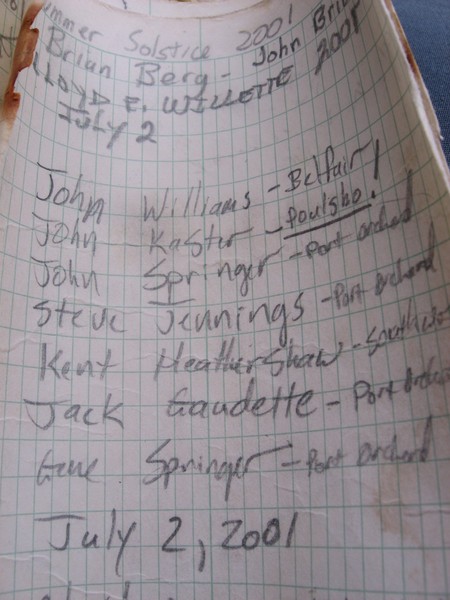 ummer Solstice 2001
Brian Berg - John Bri
LLOYD F. WILLETTE 2001
July 2
John Williams - Belfair!
John Kaster - Poulsbo!
John Springer - Port orchard
Steve Jennings - Port orchard
Kent Heathershaw - Southwo
Jack Gaudette - Port Orchard
Gene Springer - Port Orchard
July 2, 2001